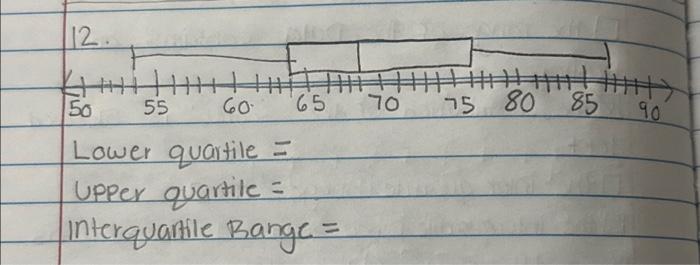 12.
50 55 60 65 70 75 80 85 90
Lower quartile =
Upper quartile =
Interquartile Range =